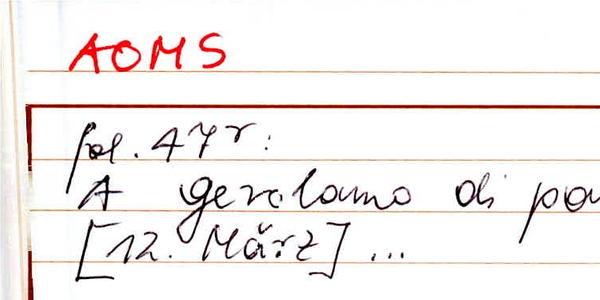 AOMS
fol. 47r:
A Gerolamo di pa
[12. März] ...